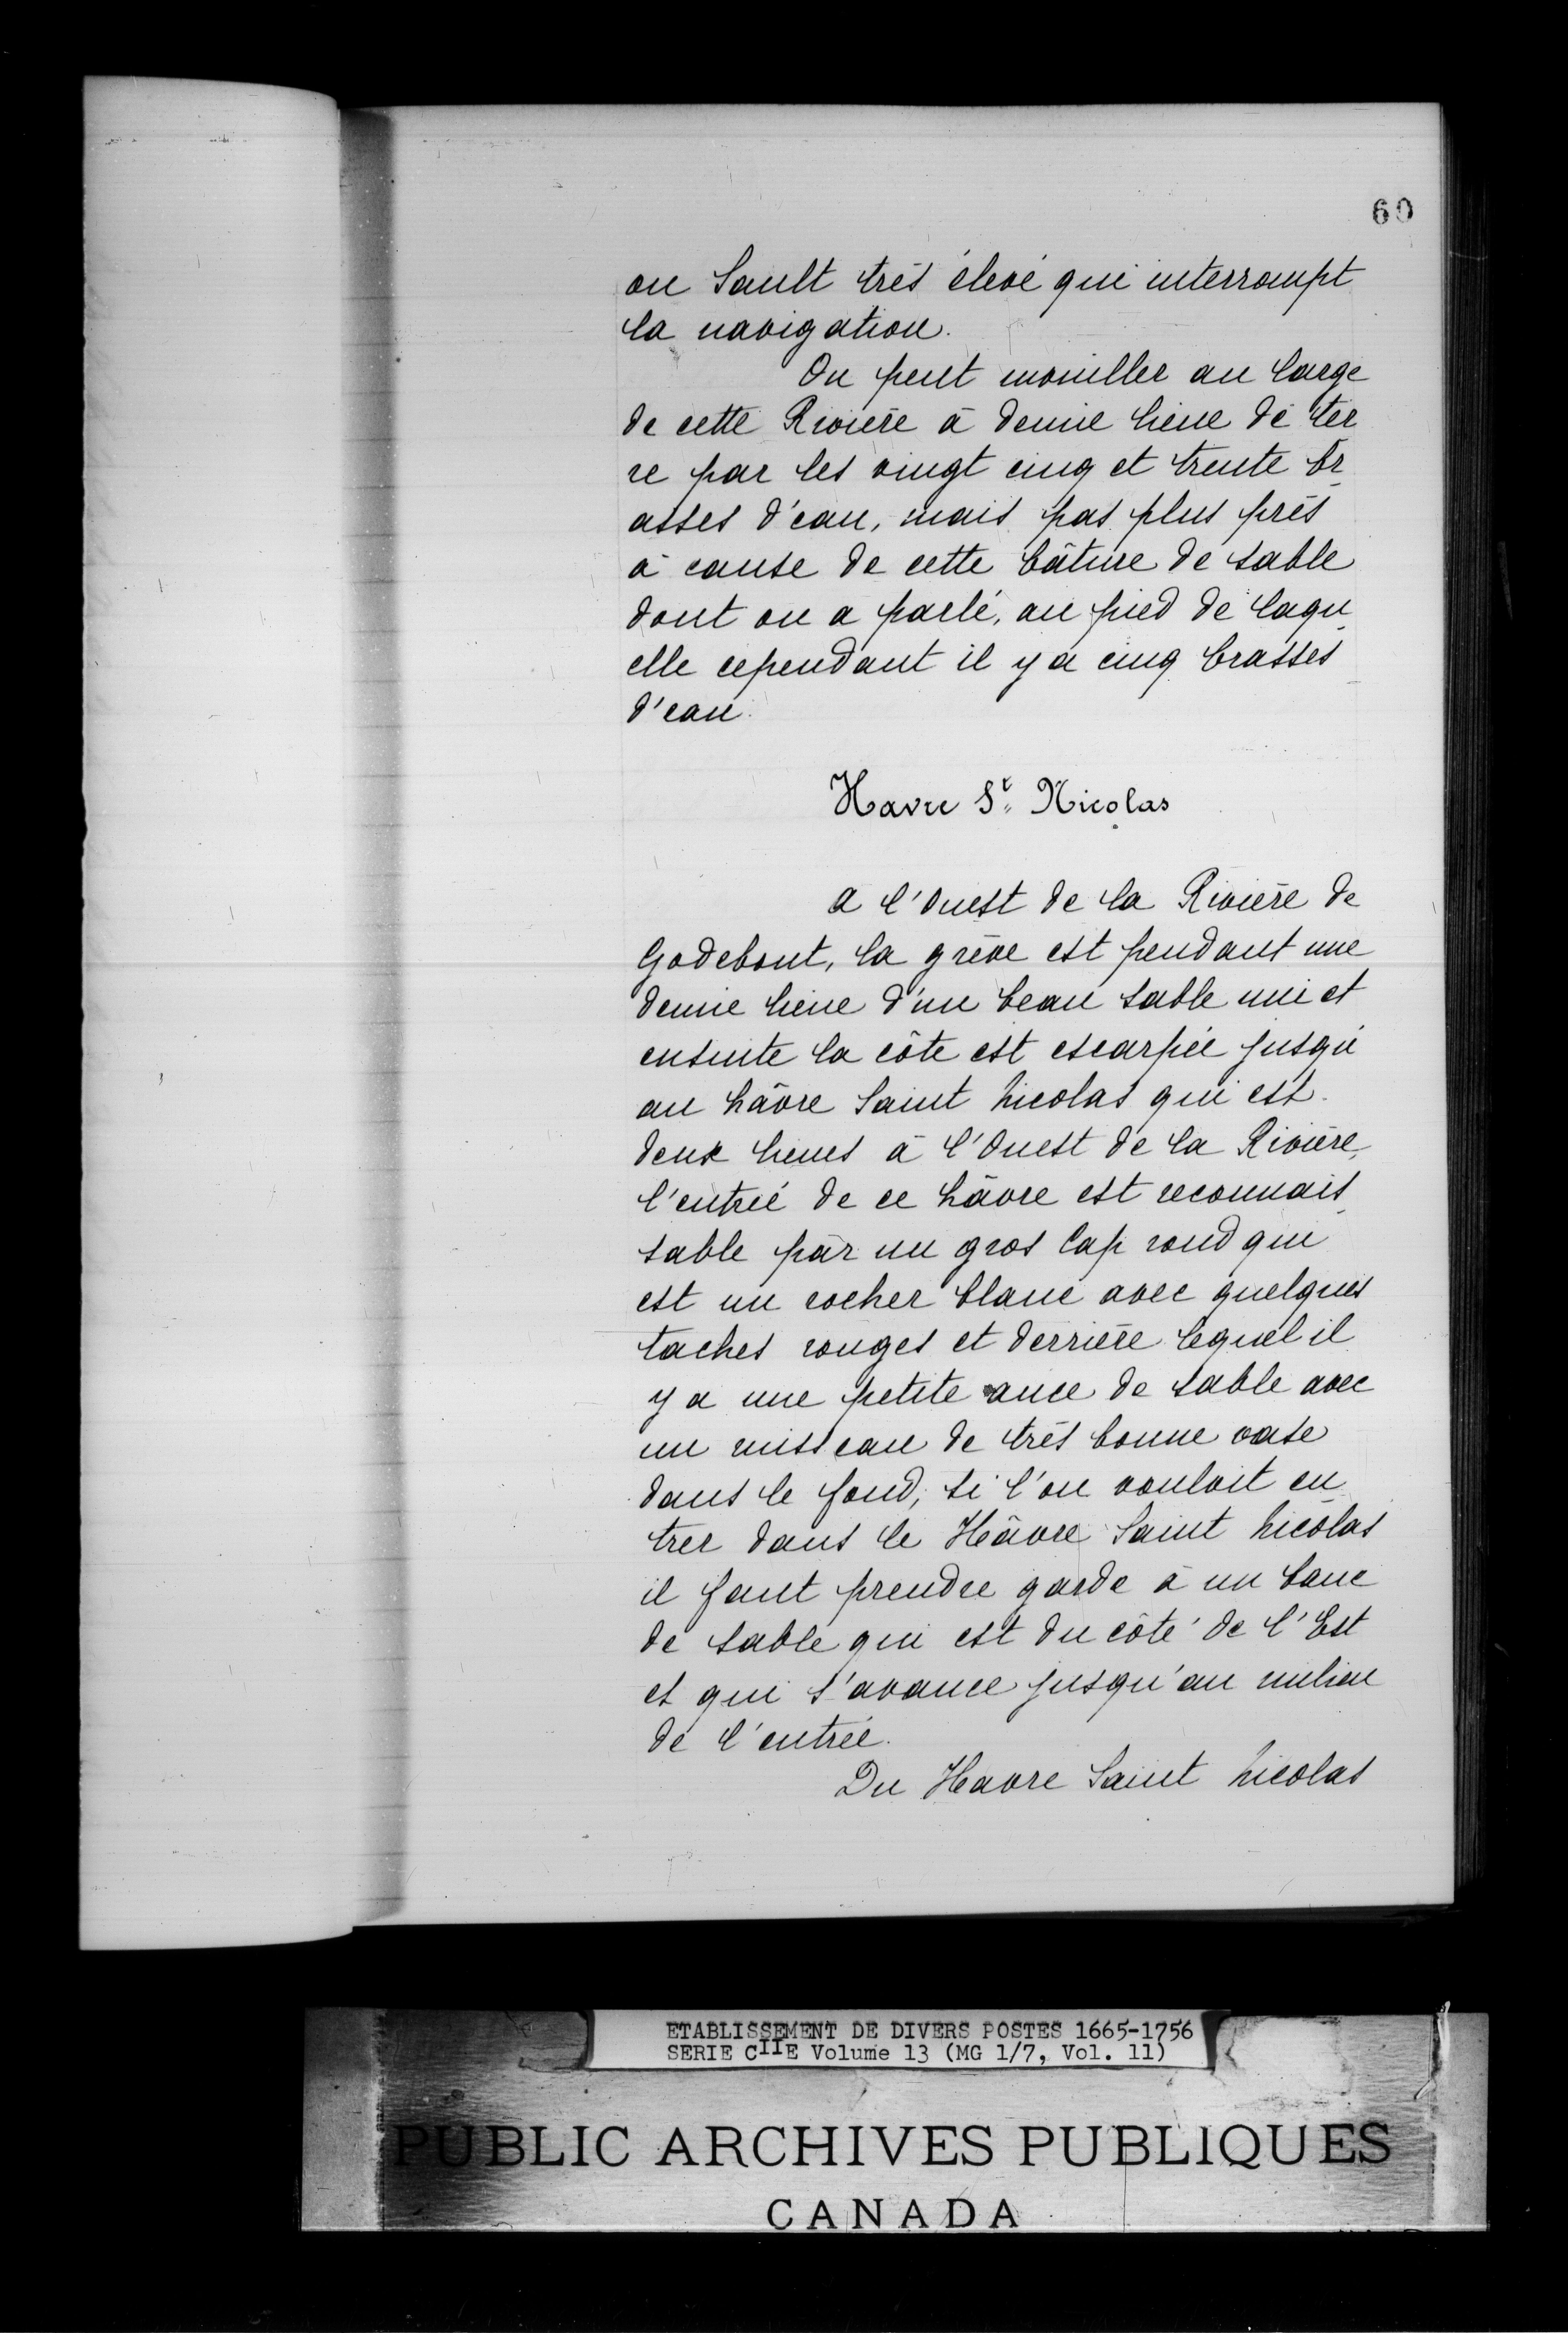 60
ou Sault très élevé qui interrompt
la navigation.
On peut mouiller au large
de cette Rivière à demie lieue de ter
re par les vingt cinq et trente br
asses d'eau, mais pas plus près
à cause de cette bâture de sable
dont on a parlé, au pied de laqu
elle cependant il y a cinq brasses
d'eau.
Havre St. Nicolas
A l'Ouest de la Rivière de
Godebout, la grève est pendant une
demie lieue d'un beau sable uni et
ensuite la côte est escarpée jusqu'
au hâvre Saint Nicolas qui est
deux lieues à l'Ouest de la Rivière,
l'entrée de ce hâvre est reconnais
sable par un gros Cap rond qui
est un rocher blanc avec quelques
taches rouges et derrière lequel il
y a une petite ance de sable avec
un ruisseau de très bonne vase
dans le fond, si l'on vouloit en
trer dans le Hâvre Saint Nicolas
il faut prendre garde à un banc
de sable qui est du côté de l'Est
et qui s'avance jusqu'au milieu
de l'entrée.
Du Havre Saint Nicolas
ETABLISSEMENT DE DIVERS POSTES 1665-1756
SERIE CIIE Volume 13 (MG 1/7, Vol. 11)
PUBLIC ARCHIVES PUBLIQUES
CANADA